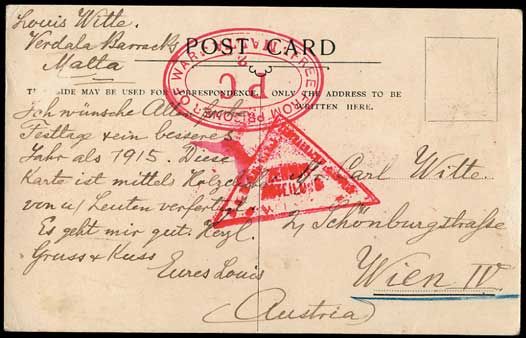 Louis Witte.
Verdala Barracks
Malta
POST CARD
THIS SIDE MAY BE USED FOR CORRESPONDENCE. ONLY THE ADDRESS TO BE
WRITTEN HERE.
PRISONER OF WAR. MALTA. FREE FROM
P C
2
Ich wünsche Allen frohe
Festtage & ein besseres
Jahr als 1915. Diese
Karte ist mittels
von u/ Leuten verfertigt
Es geht mir gut.
Gruss & Kuss
Eures Louis
Carl Witte
2, Schönburgstraße
Wien IV
Austria